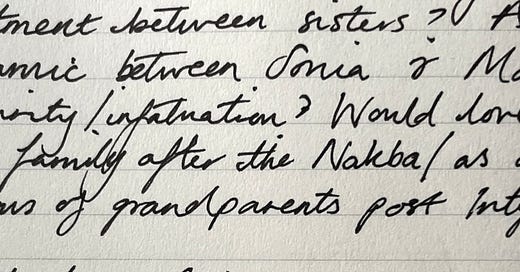 tment between sisters? A
amic between Sonia & Ma
osity/infatuation? Would love
family after the Nakba/as
us of grandparents post Inty